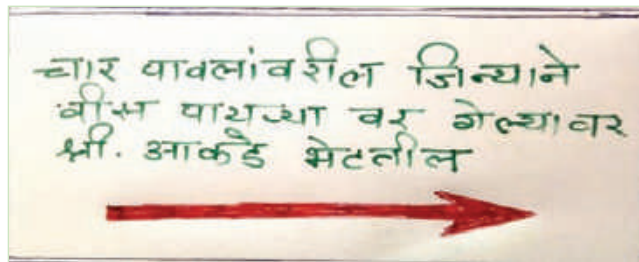 चार पावलांवरील जिन्याने
वीस पायऱ्या वर गेल्यावर
श्री. आकडे भेटतील